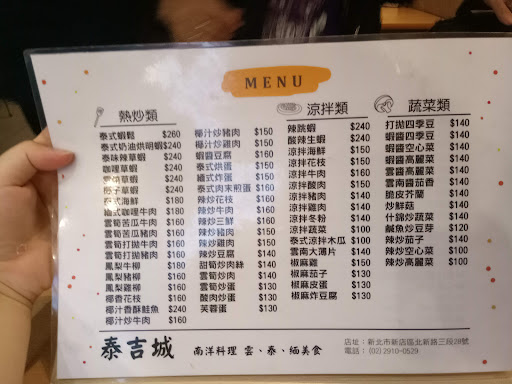 MENU
熱炒類
泰式蝦鬆 $260
泰式奶油烘明蝦 $240
泰味辣草蝦 $240
咖哩草蝦 $240
$240
椰子草蝦 $240
泰式海鮮 $180
緬式咖哩牛肉 $180
雲筍苦瓜牛肉 $160
雲筍打拋牛肉 $160
雲筍打拋豬肉 $160
鳳梨牛柳 $180
鳳梨豬柳 $160
鳳梨雞柳 $160
椰香花枝 $160
椰汁香酥鮭魚 $240
椰汁炒牛肉 $160
椰汁炒豬肉 $150
椰汁炒雞肉 $150
蝦醬豆腐 $160
泰式烘蛋 $150
緬式炸蛋 $150
泰式肉末煎蛋 $160
辣炒花枝 $160
辣炒牛肉 $160
辣炒三鮮 $160
辣炒豬肉 $150
辣炒雞肉 $150
辣炒豆腐 $140
甜筍炒肉絲 $140
雲筍炒肉 $140
雲筍炒蛋 $130
酸肉炒蛋 $130
芙蓉蛋 $130
涼拌類
辣跳蝦 $240
酸辣生蝦 $240
涼拌海鮮 $150
涼拌花枝 $150
涼拌牛肉 $160
涼拌酸肉 $150
涼拌豬肉 $150
涼拌雞肉 $140
涼拌冬粉 $140
涼拌蔬菜 $150
泰式涼拌木瓜 $100
雲南大薄片 $140
椒麻雞 $150
椒麻茄子 $140
椒麻皮蛋 $130
椒麻炸豆腐 $130
蔬菜類
打拋四季豆 $140
蝦醬四季豆 $140
蝦醬空心菜 $140
蝦醬高麗菜 $140
雲醬高麗菜 $140
雲南醬茄香 $140
脆皮芥蘭 $140
炒鮮菇 $140
什錦炒蔬菜 $140
鹹魚炒豆芽 $120
辣炒茄子 $140
辣炒空心菜 $100
辣炒高麗菜 $100
泰吉城
南洋料理 雲、泰、緬美食
店址：新北市新店區北新路三段28號
電話：(02) 2910-0529